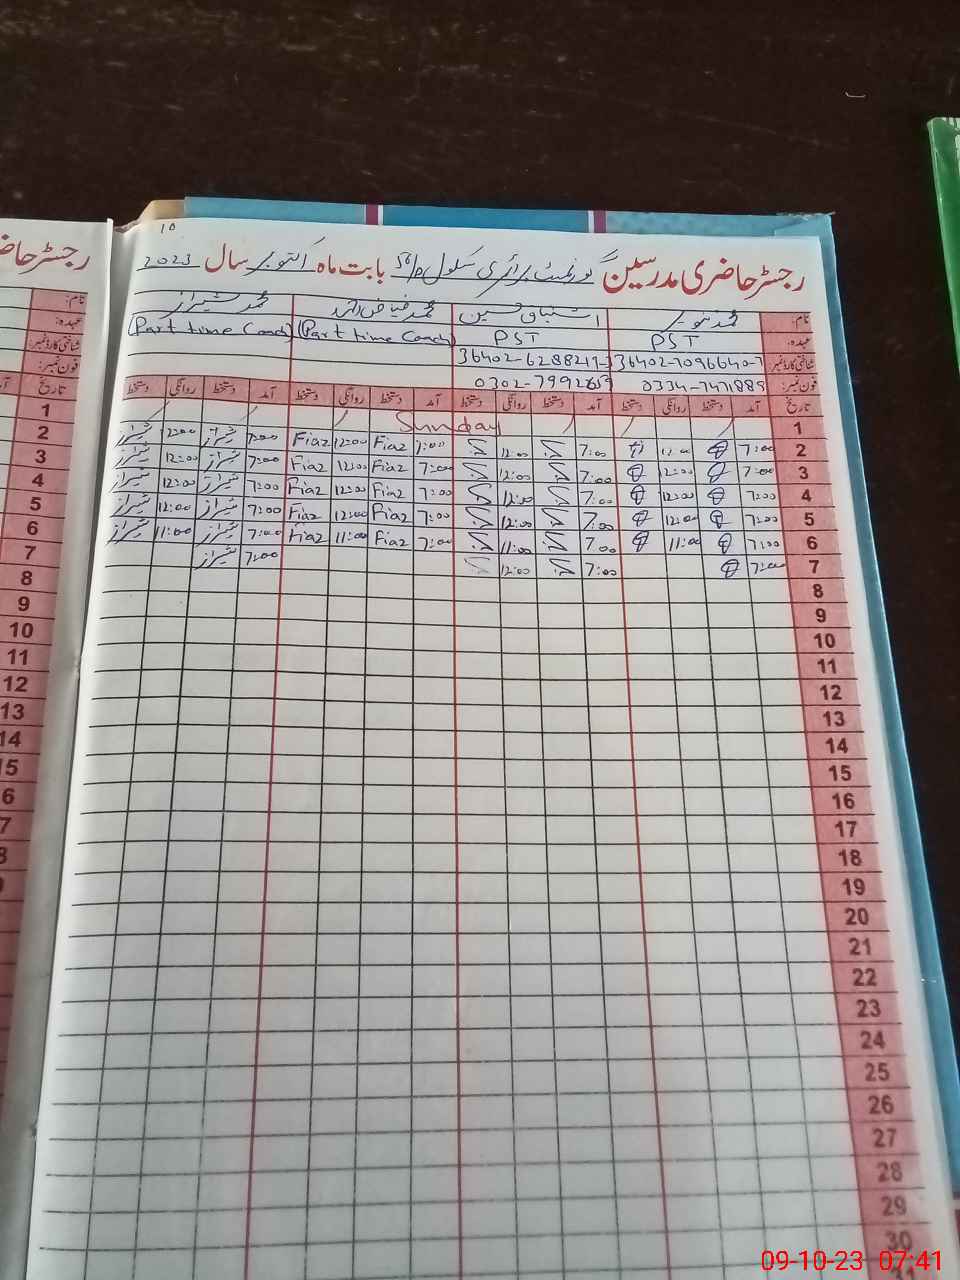 10
رجسٹر حاضری مدرسین گورنمنٹ پرائمری سکول بابت ماہ اکتوبر سال 2023
نام: محمد اشتیاق حسین محمد فیاض محمد شیراز
عہدہ: PST PST (Part time Coach) (Part time Coach)
شناختی کارڈ نمبر: 36402-6288217-3
فون نمبر: 0334-7471889
تاریخ آمد دستخط روانگی دستخط آمد دستخط روانگی دستخط آمد دستخط روانگی دستخط آمد دستخط روانگی دستخط تاریخ
1 Sunday 1
2 7:00 12:00 7:00 12:00 7:00 Fiaz 12:00 Fiaz 7:00 شیراز 12:00 شیراز 2
3 7:00 12:00 7:00 12:00 7:00 Fiaz 12:00 Fiaz 7:00 شیراز 12:00 شیراز 3
4 7:00 12:00 7:00 12:00 7:00 Fiaz 12:00 Fiaz 7:00 شیراز 12:00 شیراز 4
5 7:00 12:00 7:00 12:00 7:00 Fiaz 12:00 Fiaz 7:00 شیراز 12:00 شیراز 5
6 7:00 11:00 7:00 11:00 7:00 Fiaz 11:00 Fiaz 7:00 شیراز 11:00 شیراز 6
7 7:00 7:00 12:00 7:00 شیراز 7
8 8
9 9
10 10
11 11
12 12
13 13
14 14
15 15
16
17
18
19
20
21
22
23
24
25
26
27
28
29
30
09-10-23 07:41